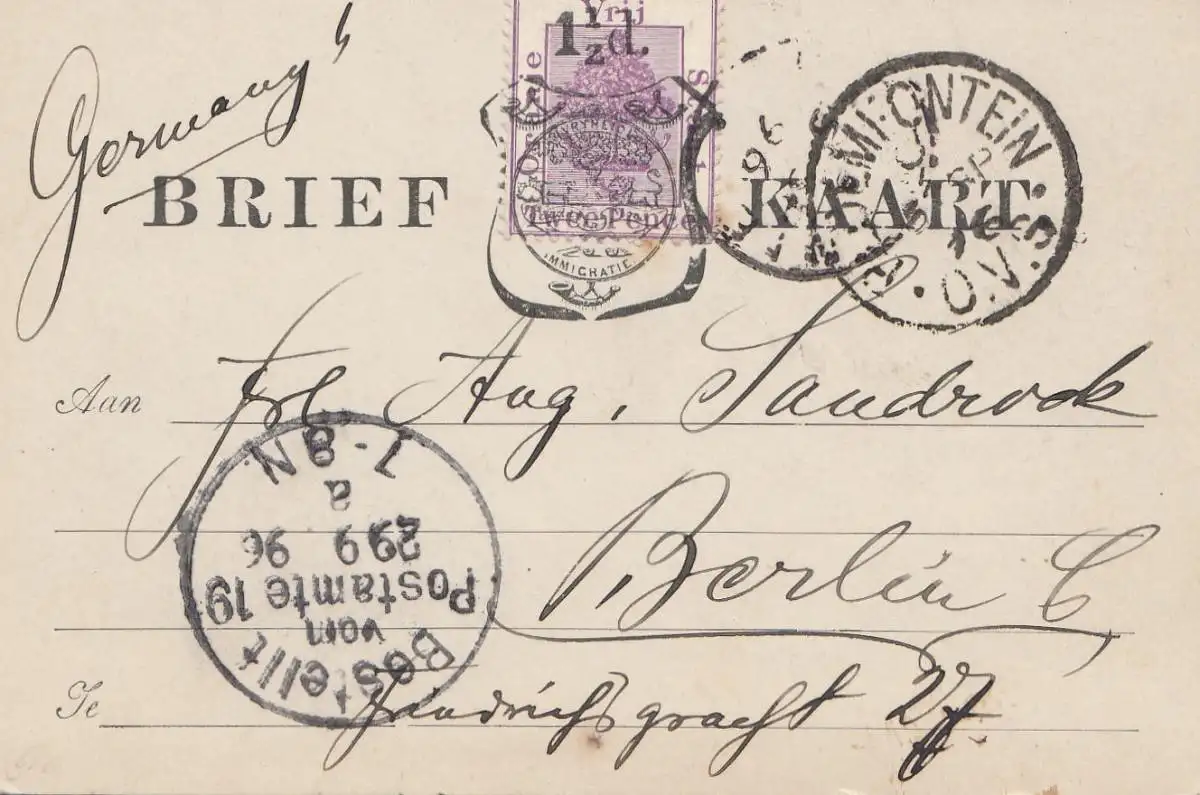 Germany
Vrij
1½d.
Twee Pence
IMMIGRATIE.
BRIEF KAART.
O.V.S.
Aan Frl Aug. Sandrock
Berlin C
Te Friedrichsgracht 27
Bestellt
vom
Postamte 19
29 9 96
a
7-8 N.